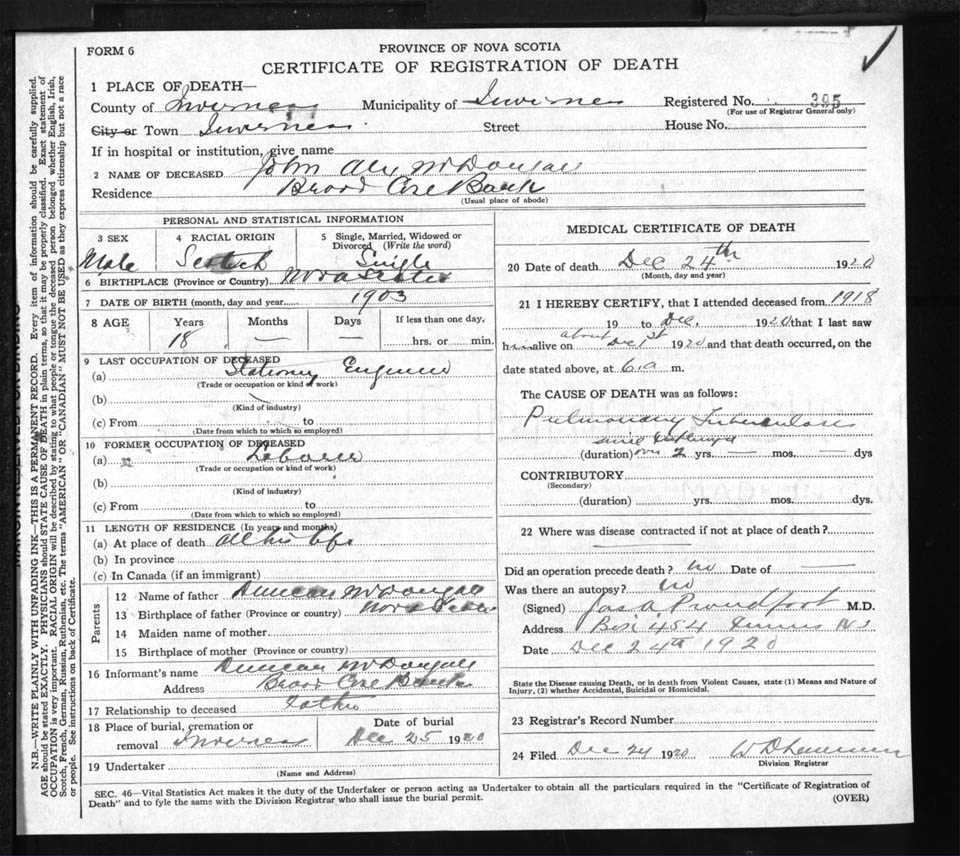 FORM 6
PROVINCE OF NOVA SCOTIA
CERTIFICATE OF REGISTRATION OF DEATH
1 PLACE OF DEATH—
County of Inverness Municipality of Inverness Registered No. 395
(For use of Registrar General only)
City or Town Inverness Street House No.
If in hospital or institution, give name
2 NAME OF DECEASED John Alex McDougall
Residence Broad Cove Banks
(Usual place of abode)
PERSONAL AND STATISTICAL INFORMATION
3 SEX 4 RACIAL ORIGIN 5 Single, Married, Widowed or Divorced (Write the word)
Male Scotch Single
6 BIRTHPLACE (Province or Country) Nova Scotia
7 DATE OF BIRTH (month, day and year) 1903
8 AGE Years Months Days If less than one day,
18 — — hrs. or min.
9 LAST OCCUPATION OF DECEASED
(a) Stationary Engineer
(Trade or occupation or kind of work)
(b)
(Kind of industry)
(c) From
(Date from which to which so employed)
10 FORMER OCCUPATION OF DECEASED
(a) Laborer
(Trade or occupation or kind of work)
(b)
(Kind of industry)
(c) From
(Date from which to which so employed)
11 LENGTH OF RESIDENCE (In years and months)
(a) At place of death all his life
(b) In province
(c) In Canada (if an immigrant)
Parents
12 Name of father Duncan McDougall
13 Birthplace of father (Province or country) Nova Scotia
14 Maiden name of mother
15 Birthplace of mother (Province or country)
16 Informant's name Duncan McDougall
Address Broad Cove Banks
17 Relationship to deceased father
18 Place of burial, cremation or removal Inverness Date of burial Dec 25 1920
19 Undertaker
(Name and Address)
MEDICAL CERTIFICATE OF DEATH
20 Date of death Dec 24th 1920
(Month, day and year)
21 I HEREBY CERTIFY, that I attended deceased from 1918
19 to Dec. 1920 that I last saw
him alive on about Dec 1st 1920 and that death occurred, on the
date stated above, at 6 a m.
The CAUSE OF DEATH was as follows:
Pulmonary Tuberculosis
since
(duration) over 2 yrs. — mos. — dys
CONTRIBUTORY
(Secondary)
(duration) yrs. mos. dys.
22 Where was disease contracted if not at place of death?
Did an operation precede death? no Date of —
Was there an autopsy? no
(Signed) Jas A Proudfoot M.D.
Address Box 454 Inverness NS
Date Dec 24th 1920
State the Disease causing Death, or in death from Violent Causes, state (1) Means and Nature of
Injury, (2) whether Accidental, Suicidal or Homicidal.
23 Registrar's Record Number
24 Filed Dec 24 1920
Division Registrar
SEC. 46—Vital Statistics Act makes it the duty of the Undertaker or person acting as Undertaker to obtain all the particulars required in the "Certificate of Registration of
Death" and to fyle the same with the Division Registrar who shall issue the burial permit.
(OVER)
MARGIN RESERVED FOR BINDING
N.B.—WRITE PLAINLY WITH UNFADING INK—THIS IS A PERMANENT RECORD. Every item of information should be carefully supplied.
AGE should be stated EXACTLY. PHYSICIANS should STATE CAUSE OF DEATH in plain terms, so that it may be properly classified. Exact statement of
OCCUPATION is very important. RACIAL ORIGIN will be described by stating to what people or tongue the deceased person belonged whether English, Irish,
Scotch, French, German, Russian, Ruthenian, etc. The terms "AMERICAN" OR "CANADIAN" MUST NOT BE USED as they express citizenship but not a race
or people. See instructions on back of Certificate.